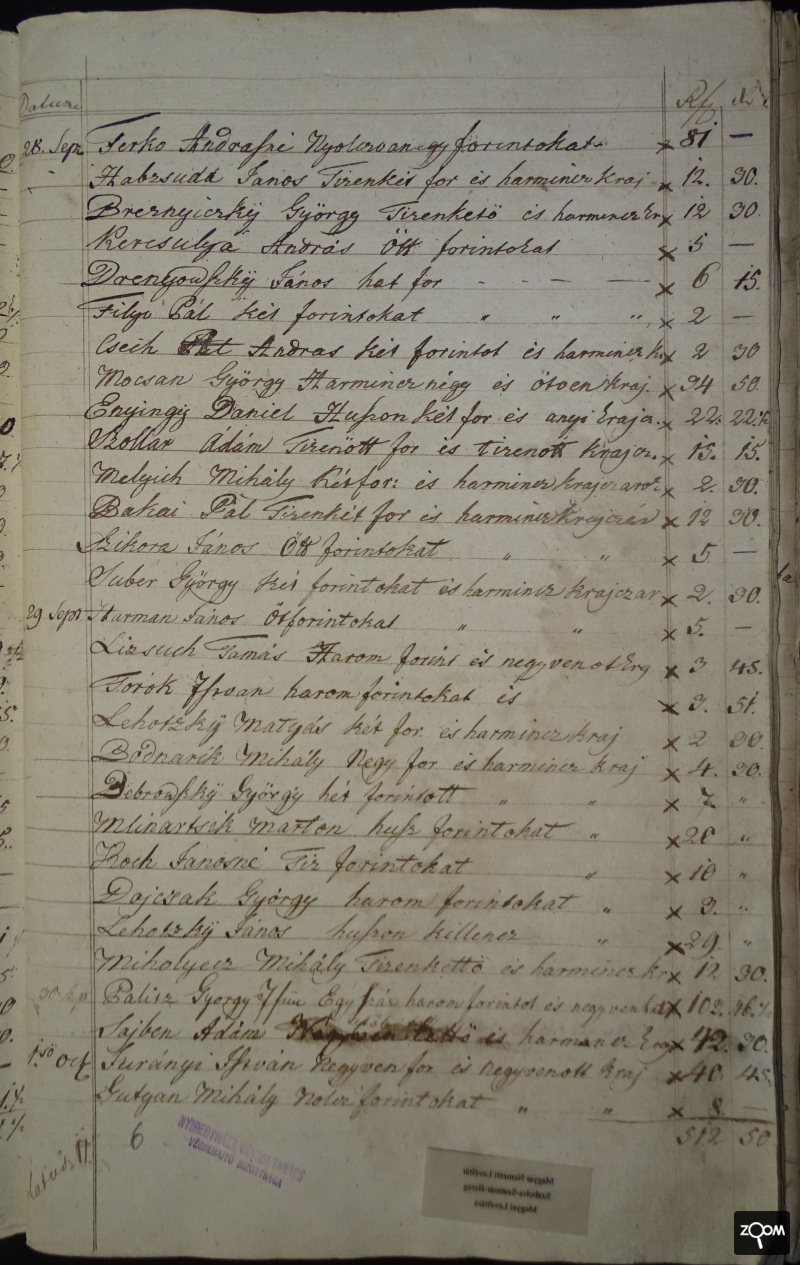 Datum Rfl. Xr
28. Sept Ferko Andrasné Nyolczvanegy forintokat x 81 —
Habzsuda Janos Tizenkét for és harmincz kraj x 12. 30.
Breznyiczkÿ György Tizenketö és harmincz kr x 12 30
Kercsulya András Ött forintokat x 5 —
DrengowszkÿJános hat for - - — — x 6 15.
Filyo Pál két forintokat " " " x 2 —
Csech Andras két forintot és harmincz k. x 2 30
Mocsan György Harmincznégy és ötven kraj. x 34 50
Enyingÿ Daniel Huszonkét for és anyi krajcz. x 22. 22.
Szollar Ádám Tizenött for és tizenött krajcz. x 15. 15.
Melyich Mihály Kétfor: és harmincz krajczarot x 2. 30.
Bakai Pál Tizenkét for és harmincz krajczár x 12 30.
Szikora János Ött forintokat " " x 5 —
Suber György két forintokat és harmincz krajczar x 2. 30.
29 Sept Harman János Ötforintokat " " x 5. —
Lizsuch Tamás Harom forint és negyvenöt krg x 3 45.
Torók Istvan harom forintokat és x 3. 51.
Lehotzkÿ Matyás két for. és harmincz kraj x 2 30.
Bodnarik Mihály Negy for és harmincz kraj x 4. 30.
Debrowszkÿ György hét forintott " " x 7 "
Mlinartsik Marton husz forintokat " x 20 "
Koch Jánosné Tiz forintokat " x 10 "
Dajczak György harom forintokat " x 3. "
Lehotzkÿ János huszon killencz " x 29 "
Miholyecz Mihály Tizenkettö és harmincz kr x 12 30.
Palisz György Egy száz harom forintot és negyven x 103. 46.
Sajben Adám és harmancz kraj x 42. 30.
1.ső Oct Surányi István Negyven for és negyvenött kraj x 40. 45
Gutyan Mihály Nolcz forintokat " " x 8 —
512 50
6
NYIREGYHÁZA VÁROSI TANÁCS
VÉGREHAJTÓ BIZOTTSÁGA
Magyar Nemzeti Levéltár
Szabolcs-Szatmár-Bereg
Megyei Levéltára
ZOOM